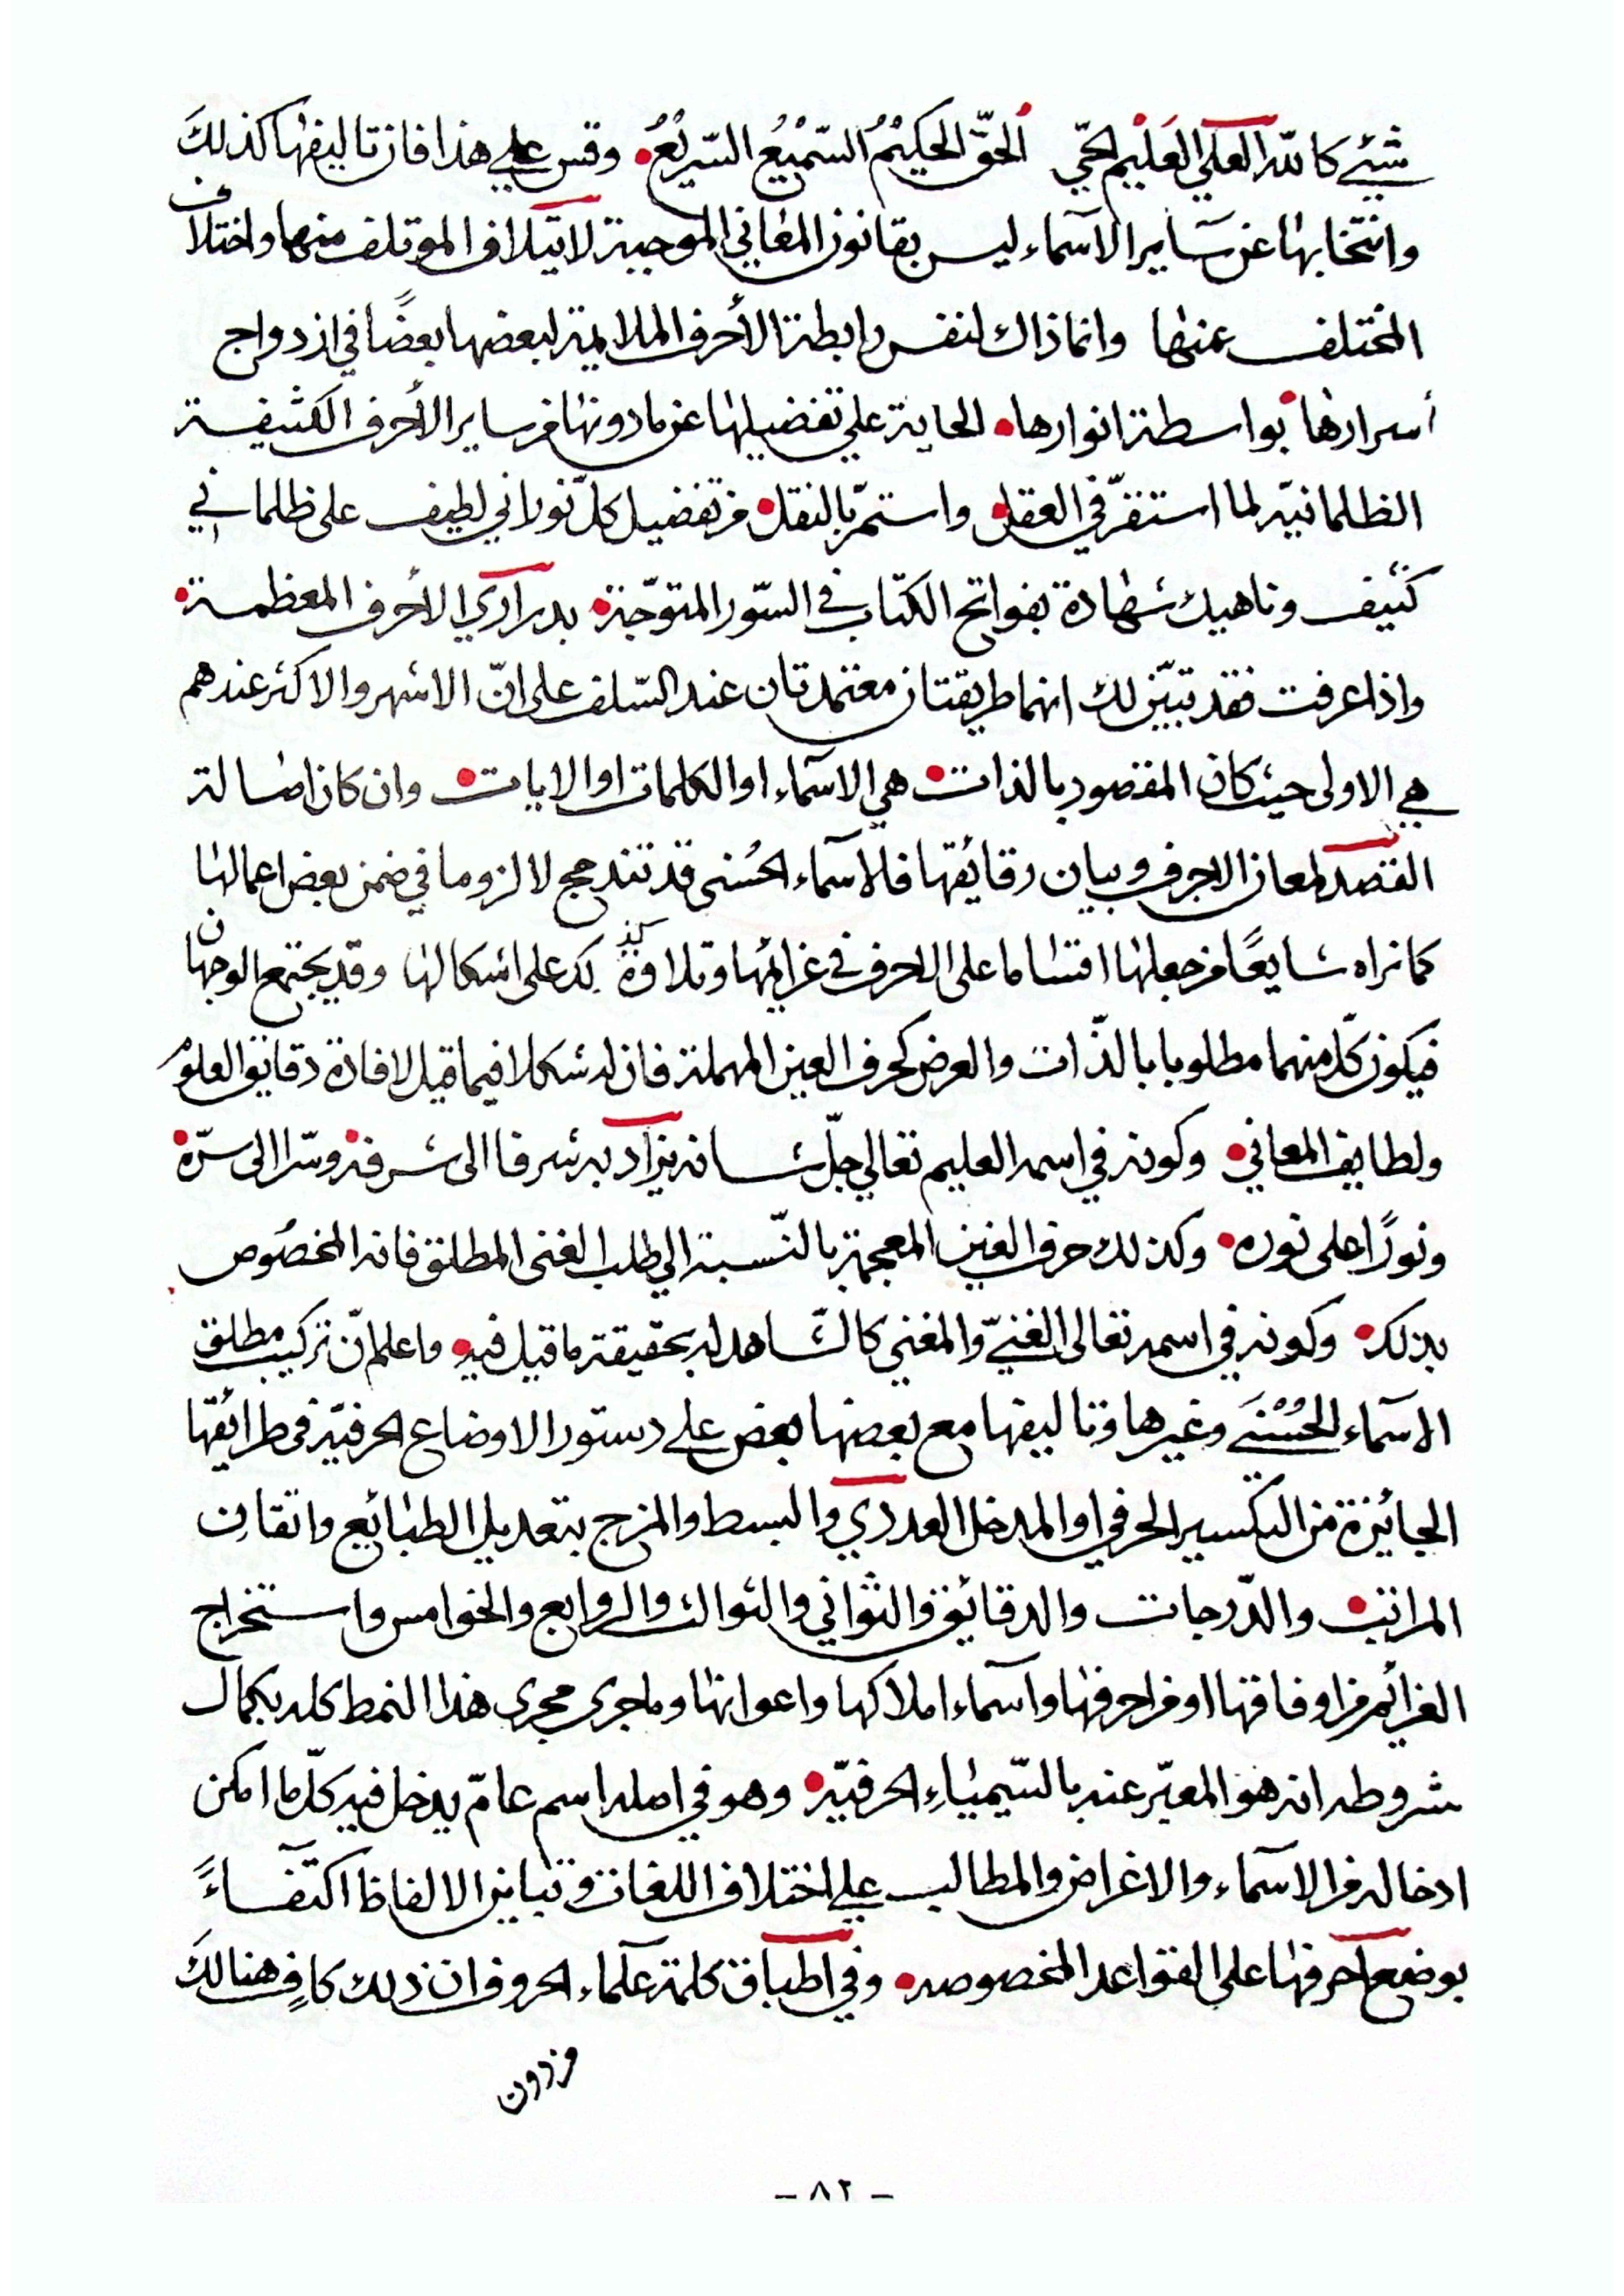 شيئ كالله العلي العليم الحي الحق الحكيم السميع السريع وقس علي هذا فان تاليفها كذلك
وانتخابها عن سآير الاسمآء ليس بقانون المعاني الموجبة لايتلاف الموتلف منها واختلاف
المختلف عنها وانما ذاك لنفس رابطة الأحرف الملايمة لبعضها بعضًا في ازدواج
أسرارها بواسطة انوارها الحاية علي تفضيلها عن ما دونها من ساير الأحرف الكثيفة
الظلمانيّة لما استقرّ في العقل واستمرّ بالنقل من تفضيل كلّ نوراني لطيف على ظلماني
كثيف وناهيك شهادة بفواتح الكتاب في السّور المتوّجة بدراري الأحرف المعظمة
واذا عرفت فقد تبيّن لك انهما طريقتان معتمدتان عند السّلف على انّ الاشهر والاكثر عندهم
هي الاولى حيث كان المقصود بالذات هي الاسمآء او الكلمات او الايات وان كان اصالة
القصد لمعان الاحرف وبيان رقائقها فالاسمآء الحُسنى قد تندحج لا لزوما في ضمن بعض اعمالها
كما نراه شايعًا من جعلها اقتساما على الاحرف في عزائمها وتلاوة كذلك على اشكالها وقد يجتمع الوجهان
فيكون كلّ منهما مطلوبا بالذّات والعرض كحرف العين المهملة فان له شكلا فيما قيل لافادة دقائق العلوم
ولطايف المعاني وكونه في اسمه العليم تعالي جلّ شانه يزاد به شرفا الى شرفه وسّرا الى سرّه
ونورًا على نوره وكذلك حرف الغين المعجمة بالنّسبة الي طلب الغنى المطلق فانه المخصُوص
بذلك وكونه في اسمه تعالى الغنيّ والمغني كالشاهد له بحقيقة ما قيل فيه واعلم انّ تركيب مطلق
الاسمآء الحُسْنَى وغيرها وتاليفها مع بعضها بعض علي دستور الاوضاع الحرفيّة في طرائقها
الجائزة من التكسير الحرفي او المدخل العددي والبسط والمزج بتعديل الطبائع واتقان
المراتب والدّرجات والدقائق والثواني والثوالث والروابع والخوامس واستخراج
العزائم من اوفاقها او من احرفها واسمآء املاكها واعوانها وما جرى مجرى هذا النمط كله بكمال
شروطه انه هو المعبّر عنه بالسّيمياءِ الحرفيّة وهو في اصله اسم عامّ يدخل فيه كلّ ما امكن
ادخاله من الاسمآء والاغراض والمطالب علي اختلاف اللغات وتباين الالفاظ اكتفآءً
بوضع احرفها على القواعد المخصوصه وفي اطباق كلمة علمآء الحروف ان ذلك كافٍ هنالكَ
من دون
- ٨٢ -